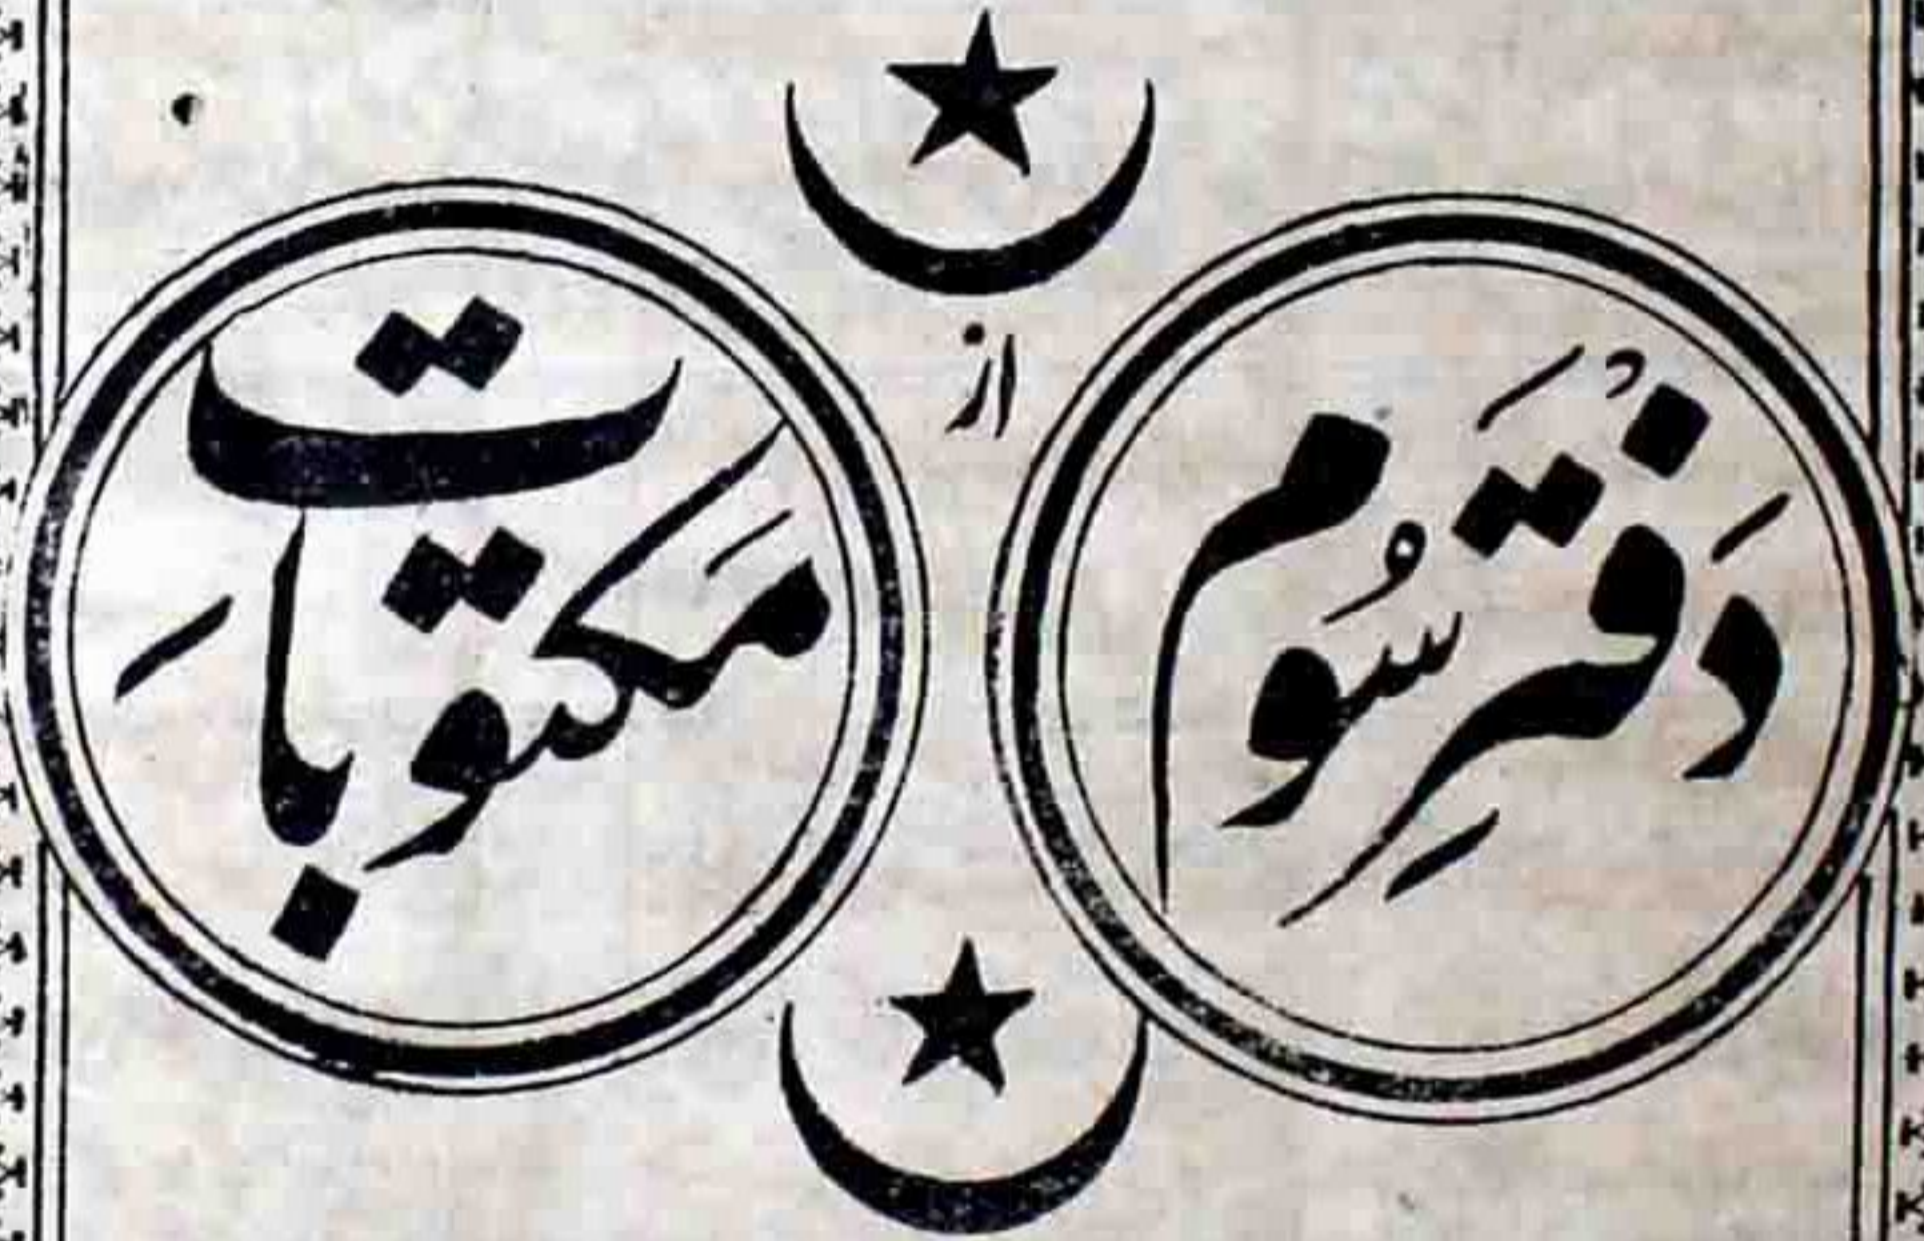 دفتر سوم
از
مکتوبات